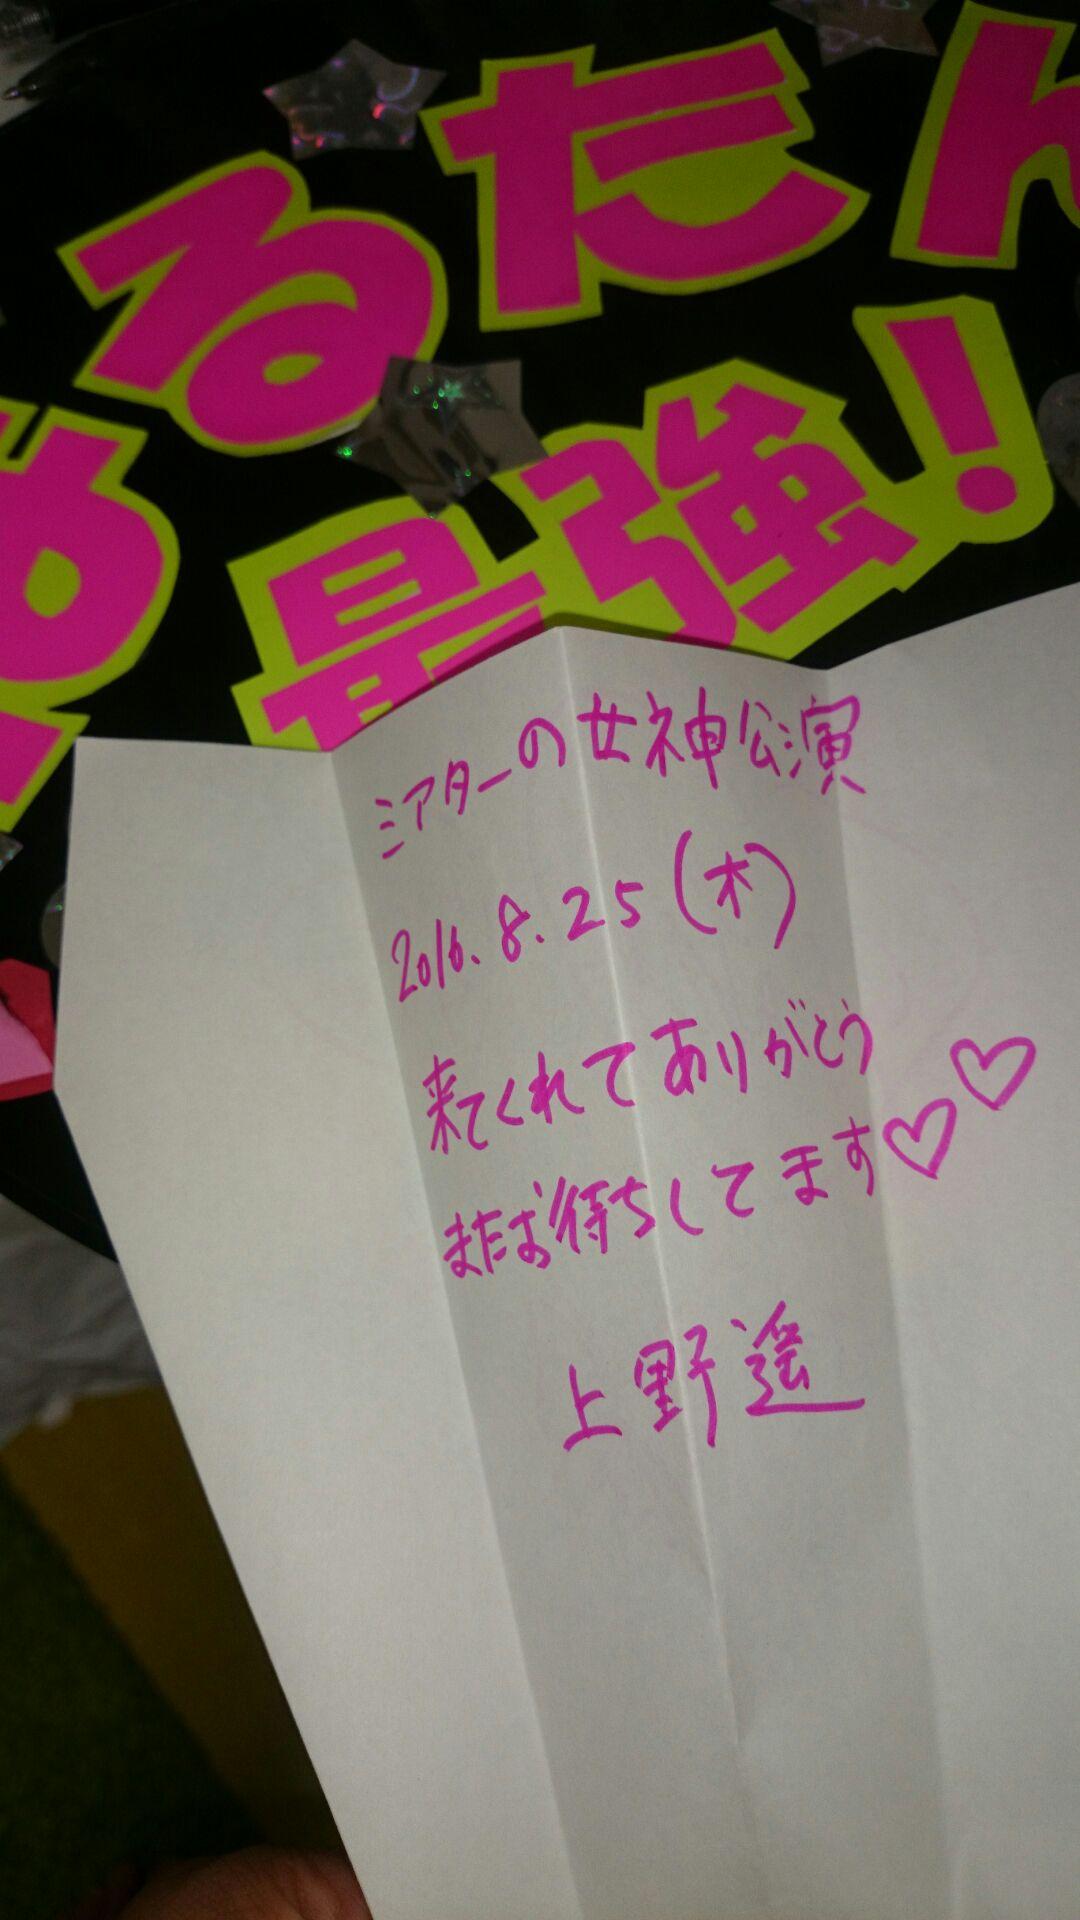 るたん
最強!
シアターの女神公演
2016.8.25(木)
来てくれてありがとう
またお待ちしてます♡♡
上野遥